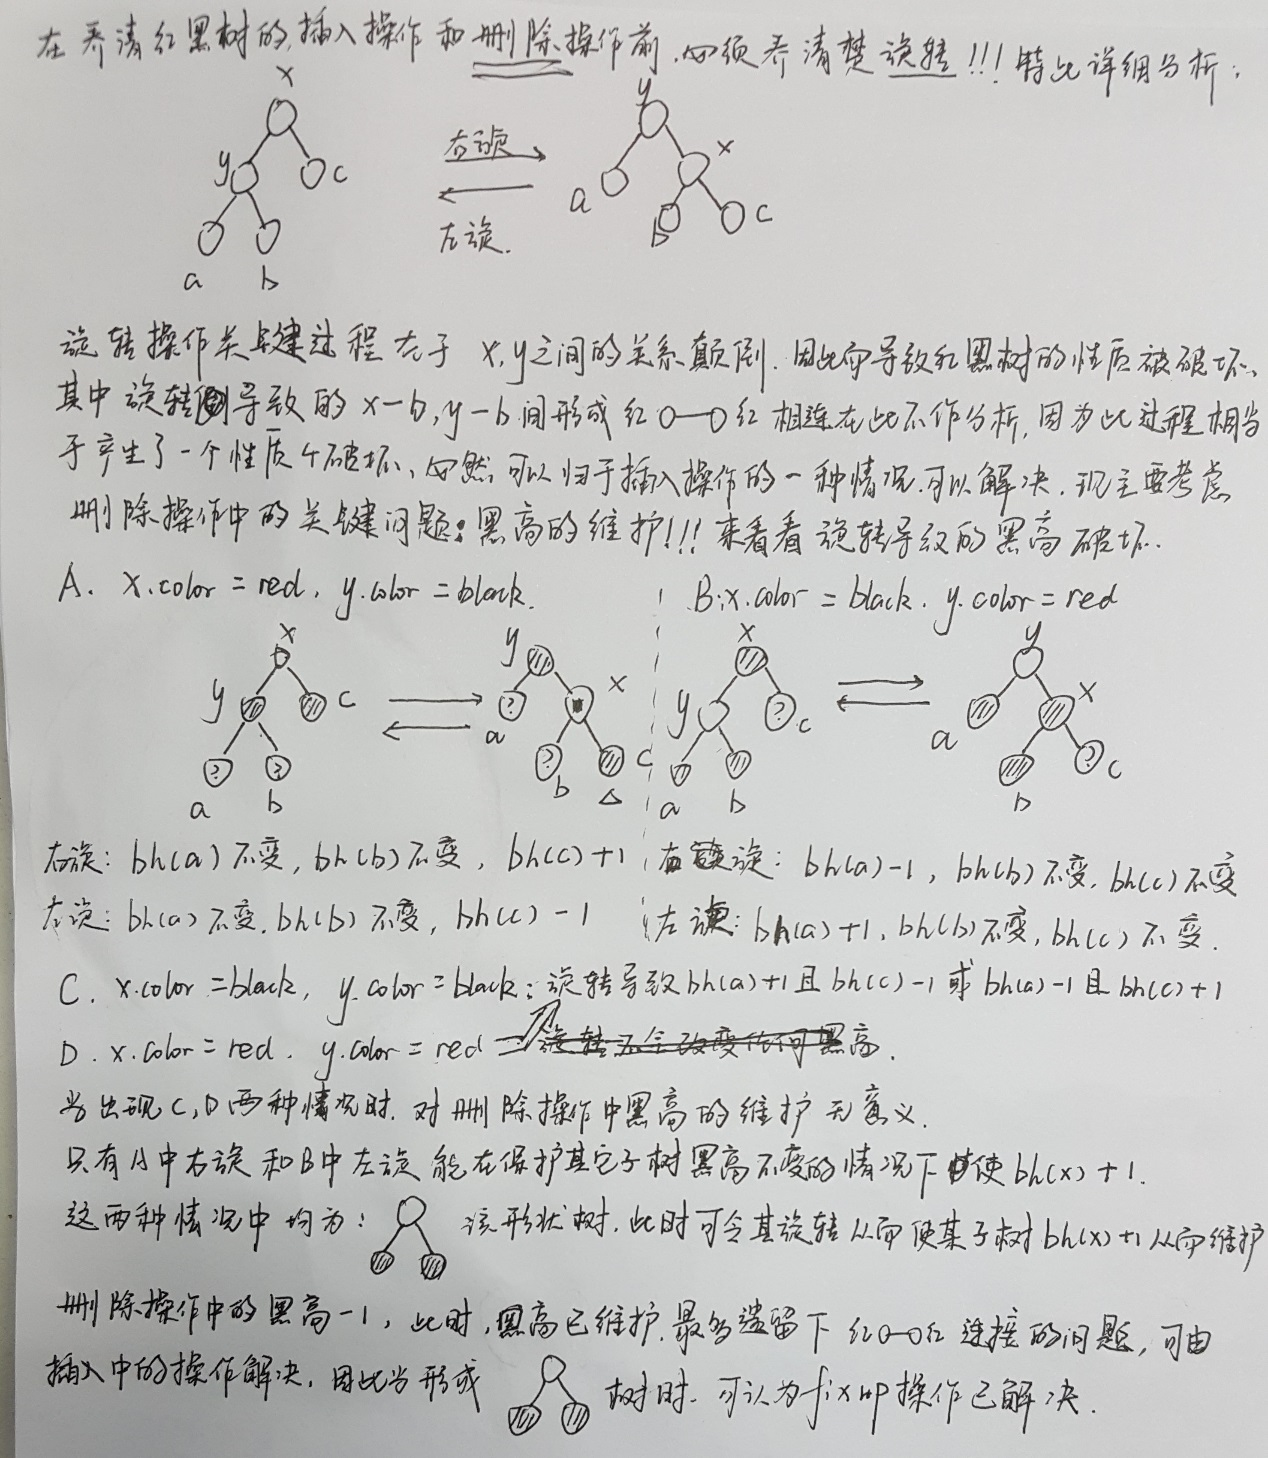 在弄清红黑树的插入操作和删除操作前,必须弄清楚旋转!!! 特此详细分析:
x
y
c
a
b
右旋
左旋.
y
x
a
b
c
旋转操作关键过程在于 x,y之间的关系颠倒.因此会导致红黑树的性质被破坏、
其中旋转导致的x-b,y-b间形成红O—O红相连在此不作分析,因为此过程相当
于产生了一个性质4破坏、必然可以归于插入操作的一种情况.可以解决.现主要考虑
删除操作中的关键问题:黑高的维护!!! 来看看旋转导致的黑高破坏.
A. x.color = red, y.color = black.
B: x.color = black. y.color = red
x
y
c
?
?
a
b
y
x
?
a
?
b
c
x
y
?
c
a
b
y
x
a
b
?
c
右旋: bh(a)不变, bh(b)不变, bh(c)+1
右旋: bh(a)-1, bh(b)不变, bh(c)不变
左旋: bh(a)不变, bh(b)不变, bh(c)-1
左旋: bh(a)+1, bh(b)不变, bh(c)不变.
C. x.color = black, y.color = black: 旋转导致bh(a)+1且bh(c)-1或bh(a)-1且bh(c)+1
D. x.color = red. y.color = red 旋转不会改变任何黑高.
当出现C,D两种情况时.对删除操作中黑高的维护无意义.
只有A中右旋和B中左旋能在保护其它子树黑高不变的情况下使bh(x)+1.
这两种情况中均为: 该形状树.此时可令其旋转从而使某子树bh(x)+1从而维护
删除操作中的黑高-1,此时,黑高已维护.最多遗留下红O-O红连接的问题,可由
插入中的操作解决.因此当形成 树时.可认为fixup操作已解决.